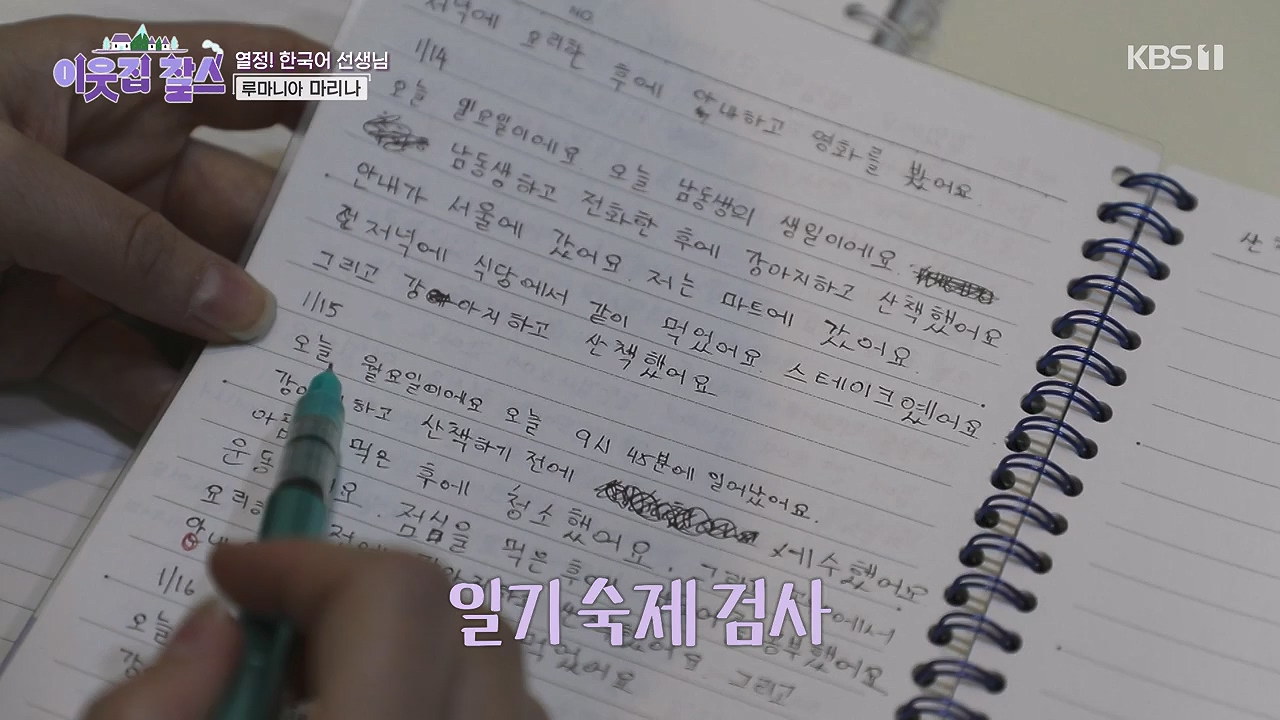 이웃집 찰스
열정! 한국어 선생님
루마니아 마리나
KBS 1
NO
저녁에 요리한 후에 안내하고 영화를 봤어요.
1/14
오늘 일요일이에요. 오늘 남동생의 생일이에요.
남동생하고 전화한 후에 강아지하고 산책했어요.
안내가 서울에 갔어요. 저는 마트에 갔어요.
저녁에 식당에서 같이 먹었어요. 스테이크였어요.
그리고 강아지하고 산책했어요
1/15
오늘 월요일이에요 오늘 9시 45분에 일어났어요.
하고 산책하기 전에 세수했어요
먹은 후에 청소했어요. 에서
운동 요. 점심을 먹은 공부했어요
요리하 요. 그리고
안내 전에 먹었어요
1/16
오늘
산
일기 숙제 검사